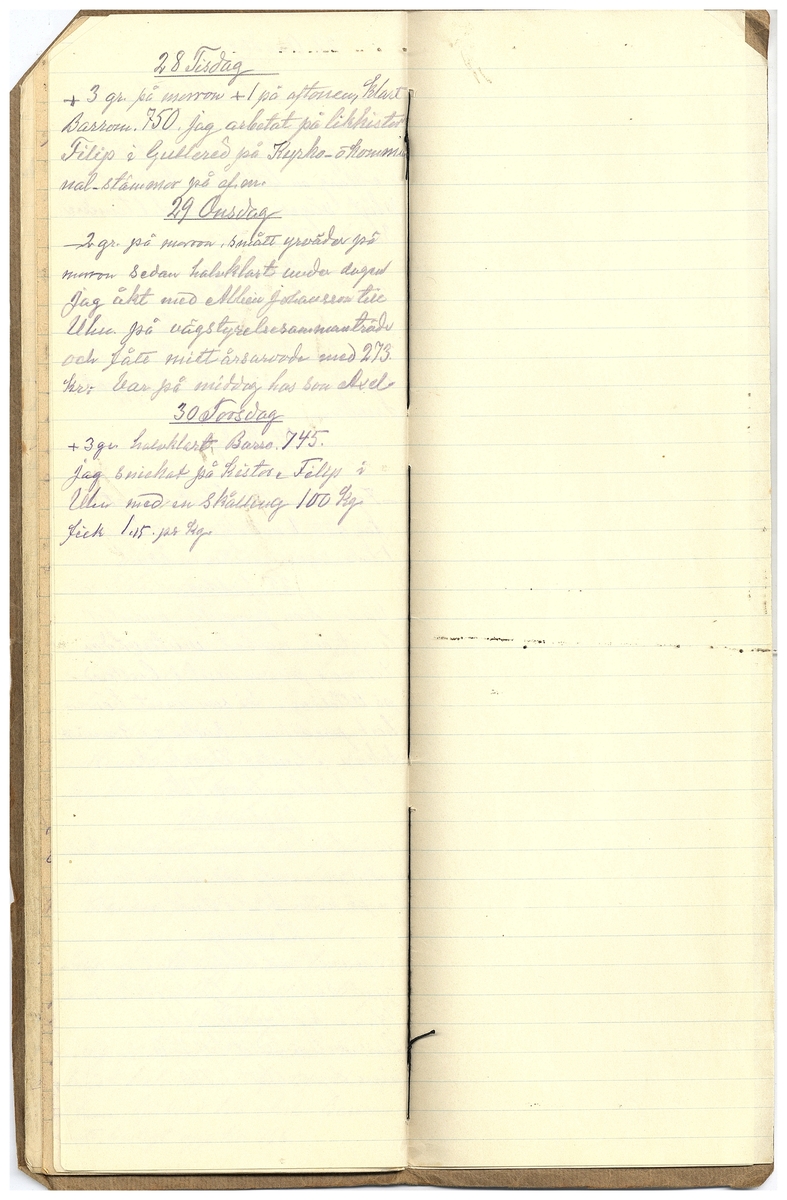 28 Tisdag
+ 3 gr. på morron + 1 på aftonen, klart
Barrom. 750. jag arbetat på likkistor
Filip i Gullered på Kyrko- o kommu
nal-stämmor på ef.m.
29 Onsdag
-2 gr. på morron, smått yrväder på
morron sedan halvklart under dagen
jag åkt med Albin Johansson till
Uhn. på vägstyrelsesammanträde
och fått mitt årsarvode med 273.
kr: var på middag hos son Axel.
30 Torsdag
+ 3 gr halvklart. Barro. 745.
jag snickat på kistor. Filip i
Uhn med en Skålling 100 kg
fick 1,15. pr kg.